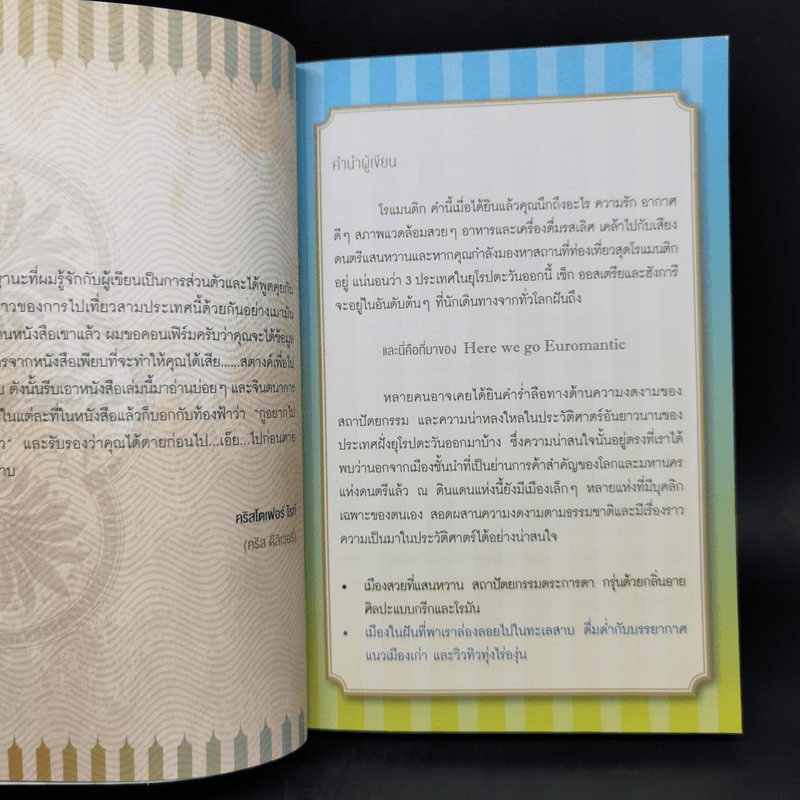 ฐานะที่ผมรู้จักกับผู้เขียนเป็นการส่วนตัวและได้พูดคุยกัน
าวของการไปเที่ยวสามประเทศนี้ด้วยกันอย่างเมามัน
านหนังสือเขาแล้ว ผมขอคอนเฟิร์มครับว่าคุณจะได้ข้อมูล
ารจากหนังสือเพียบที่จะทำให้คุณได้เสีย......สตางค์เพื่อไป
บ ดังนั้นรีบเอาหนังสือเล่มนี้มาอ่านบ่อยๆ และจินตนาการ
ปในแต่ละที่ในหนังสือแล้วก็บอกกับท้องฟ้าว่า "กูอยากไป
ว" และรับรองว่าคุณได้ตายก่อนไป...เอ๊ย...ไปก่อนตาย
าบ
คริสโตเฟอร์ ไรท์
(คริส ดีลิเวอรี่)
คำนำผู้เขียน
โรแมนติก คำนี้เมื่อได้ยินแล้วคุณนึกถึงอะไร ความรัก อากาศ
ดีๆ สภาพแวดล้อมสวยๆ อาหารและเครื่องดื่มรสเลิศ เคล้าไปกับเสียง
ดนตรีแสนหวานและหากคุณกำลังมองหาสถานที่ท่องเที่ยวสุดโรแมนติก
อยู่ แน่นอนว่า 3 ประเทศในยุโรปตะวันออกนี้ เช็ก ออสเตรียและฮังการี
จะอยู่ในอันดับต้นๆ ที่นักเดินทางจากทั่วโลกฝันถึง
และนี่คือที่มาของ Here we go Euromantic
หลายคนอาจเคยได้ยินคำร่ำลือทางด้านความงดงามของ
สถาปัตยกรรม และความน่าหลงใหลในประวัติศาสตร์อันยาวนานของ
ประเทศฝั่งยุโรปตะวันออกมาบ้าง ซึ่งความน่าสนใจนั้นอยู่ตรงที่เราได้
พบว่านอกจากเมืองชั้นนำที่เป็นย่านการค้าสำคัญของโลกและมหานคร
แห่งดนตรีแล้ว ณ ดินแดนแห่งนี้ยังมีเมืองเล็กๆ หลายแห่งที่มีบุคลิก
เฉพาะของตนเอง สอดผสานความงดงามตามธรรมชาติและมีเรื่องราว
ความเป็นมาในประวัติศาสตร์ได้อย่างน่าสนใจ
• เมืองสวยที่แสนหวาน สถาปัตยกรรมตระการตา กรุ่นด้วยกลิ่นอาย
ศิลปะแบบกรีกและโรมัน
• เมืองในฝันที่พาเราล่องลอยไปในทะเลสาบ ดื่มด่ำกับบรรยากาศ
แนวเมืองเก่า และวิวทิวทุ่งไร่องุ่น